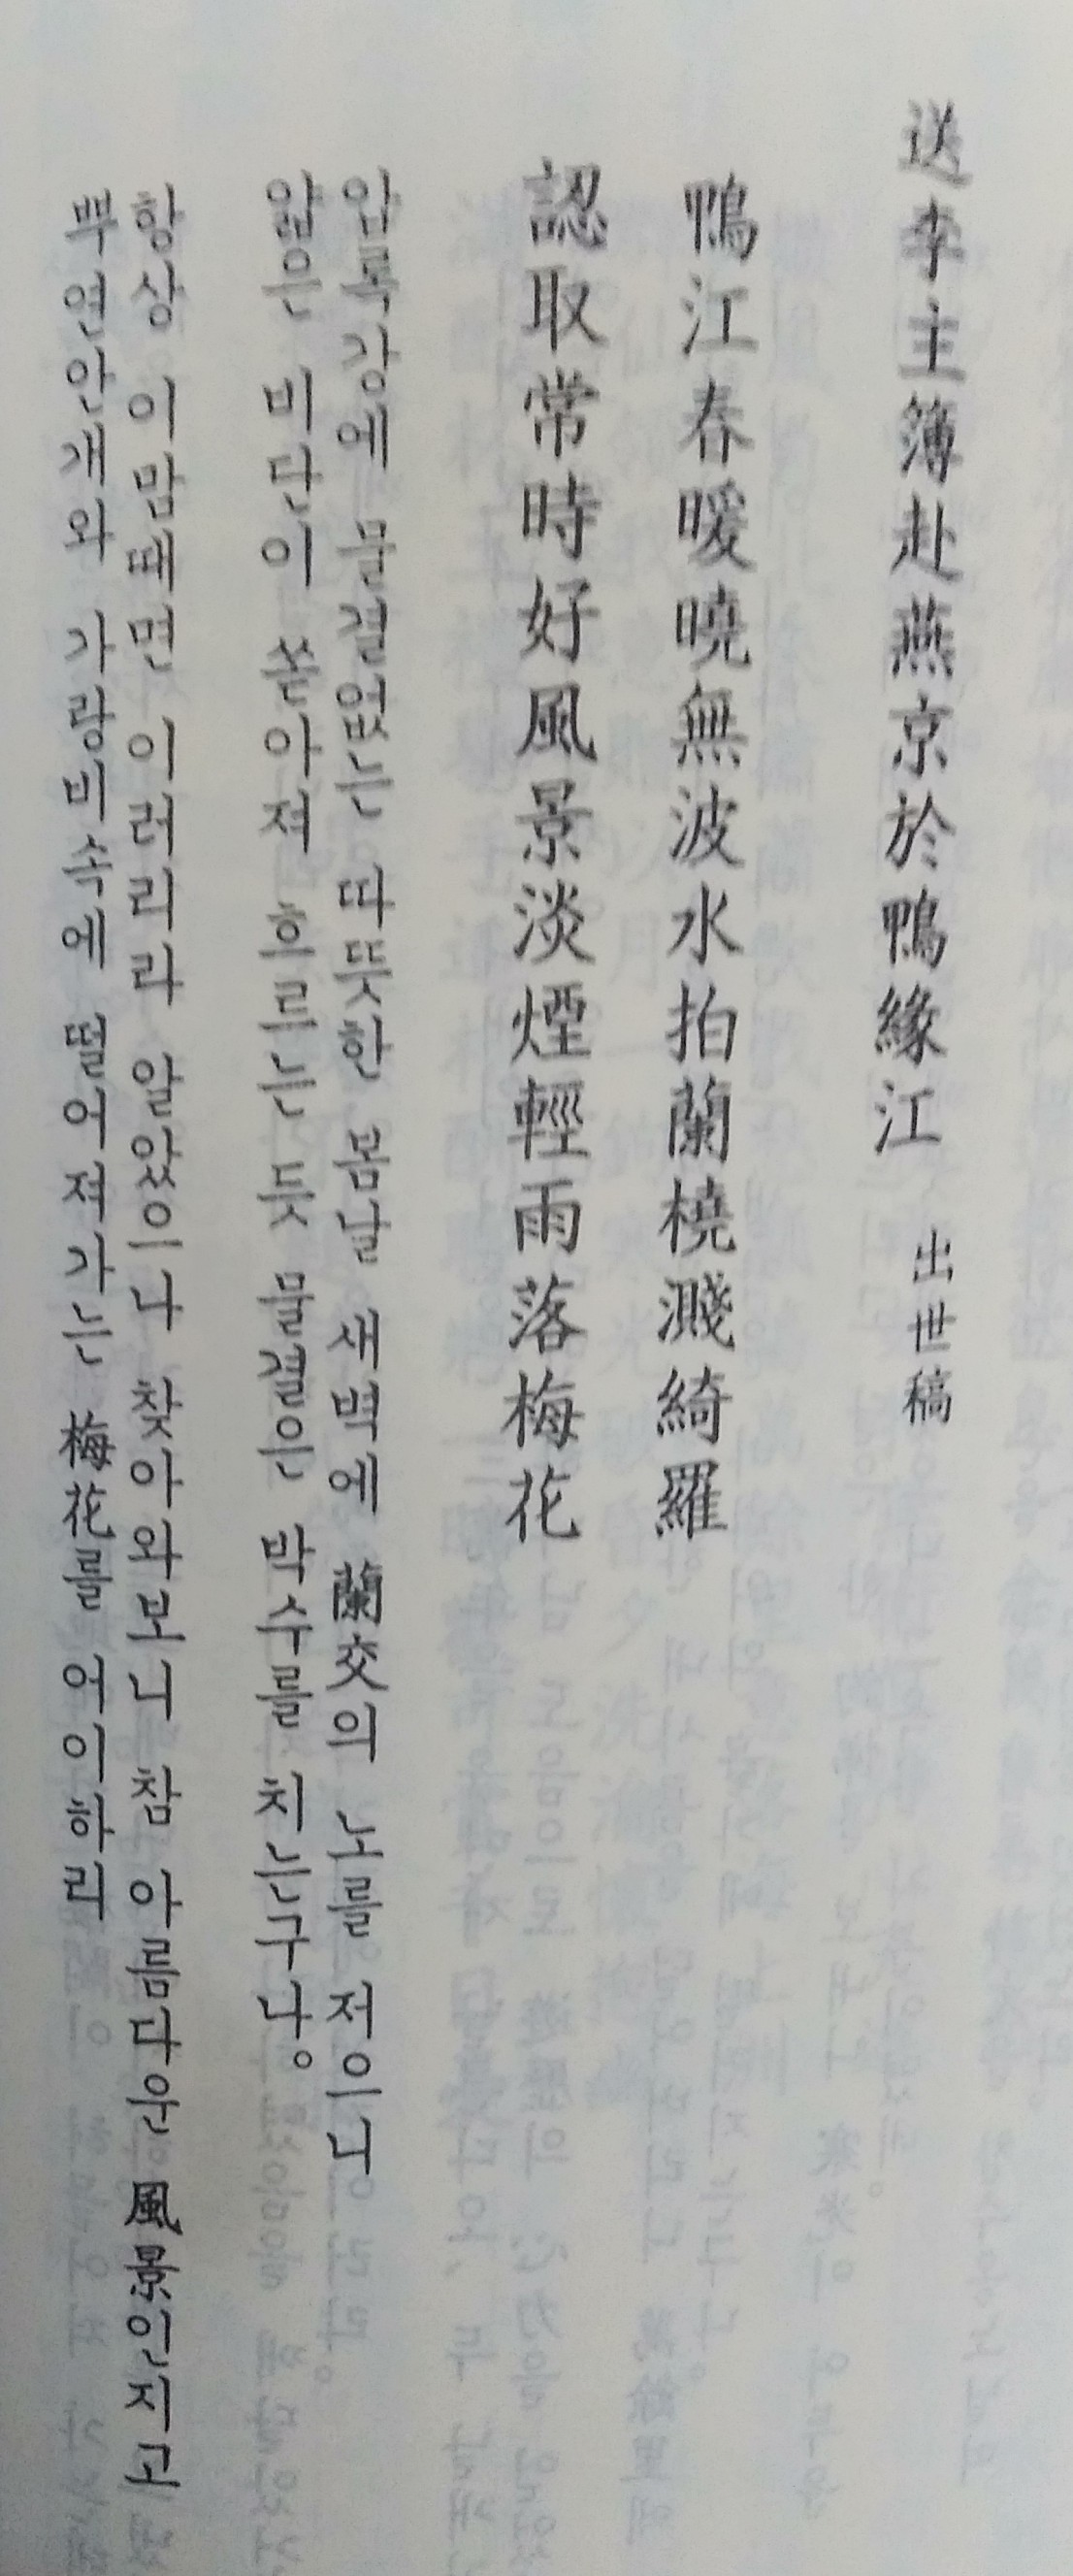 送李主簿赴燕京於鴨緣江 出世稿
鴨江春暖曉無波水拍蘭橈濺綺羅
認取常時好風景淡煙輕雨落梅花
압록강에 물결없는 따뜻한 봄날 새벽에 蘭交의 노를 저으니
얇은 비단이 쏟아져 흐르는 듯 물결은 박수를 치는구나。
항상 이맘때면 이러리라 알았으나 찾아와보니 참 아름다운 風景인지고
뿌연안개와 가랑비속에 떨어져가는 梅花를 어이하리